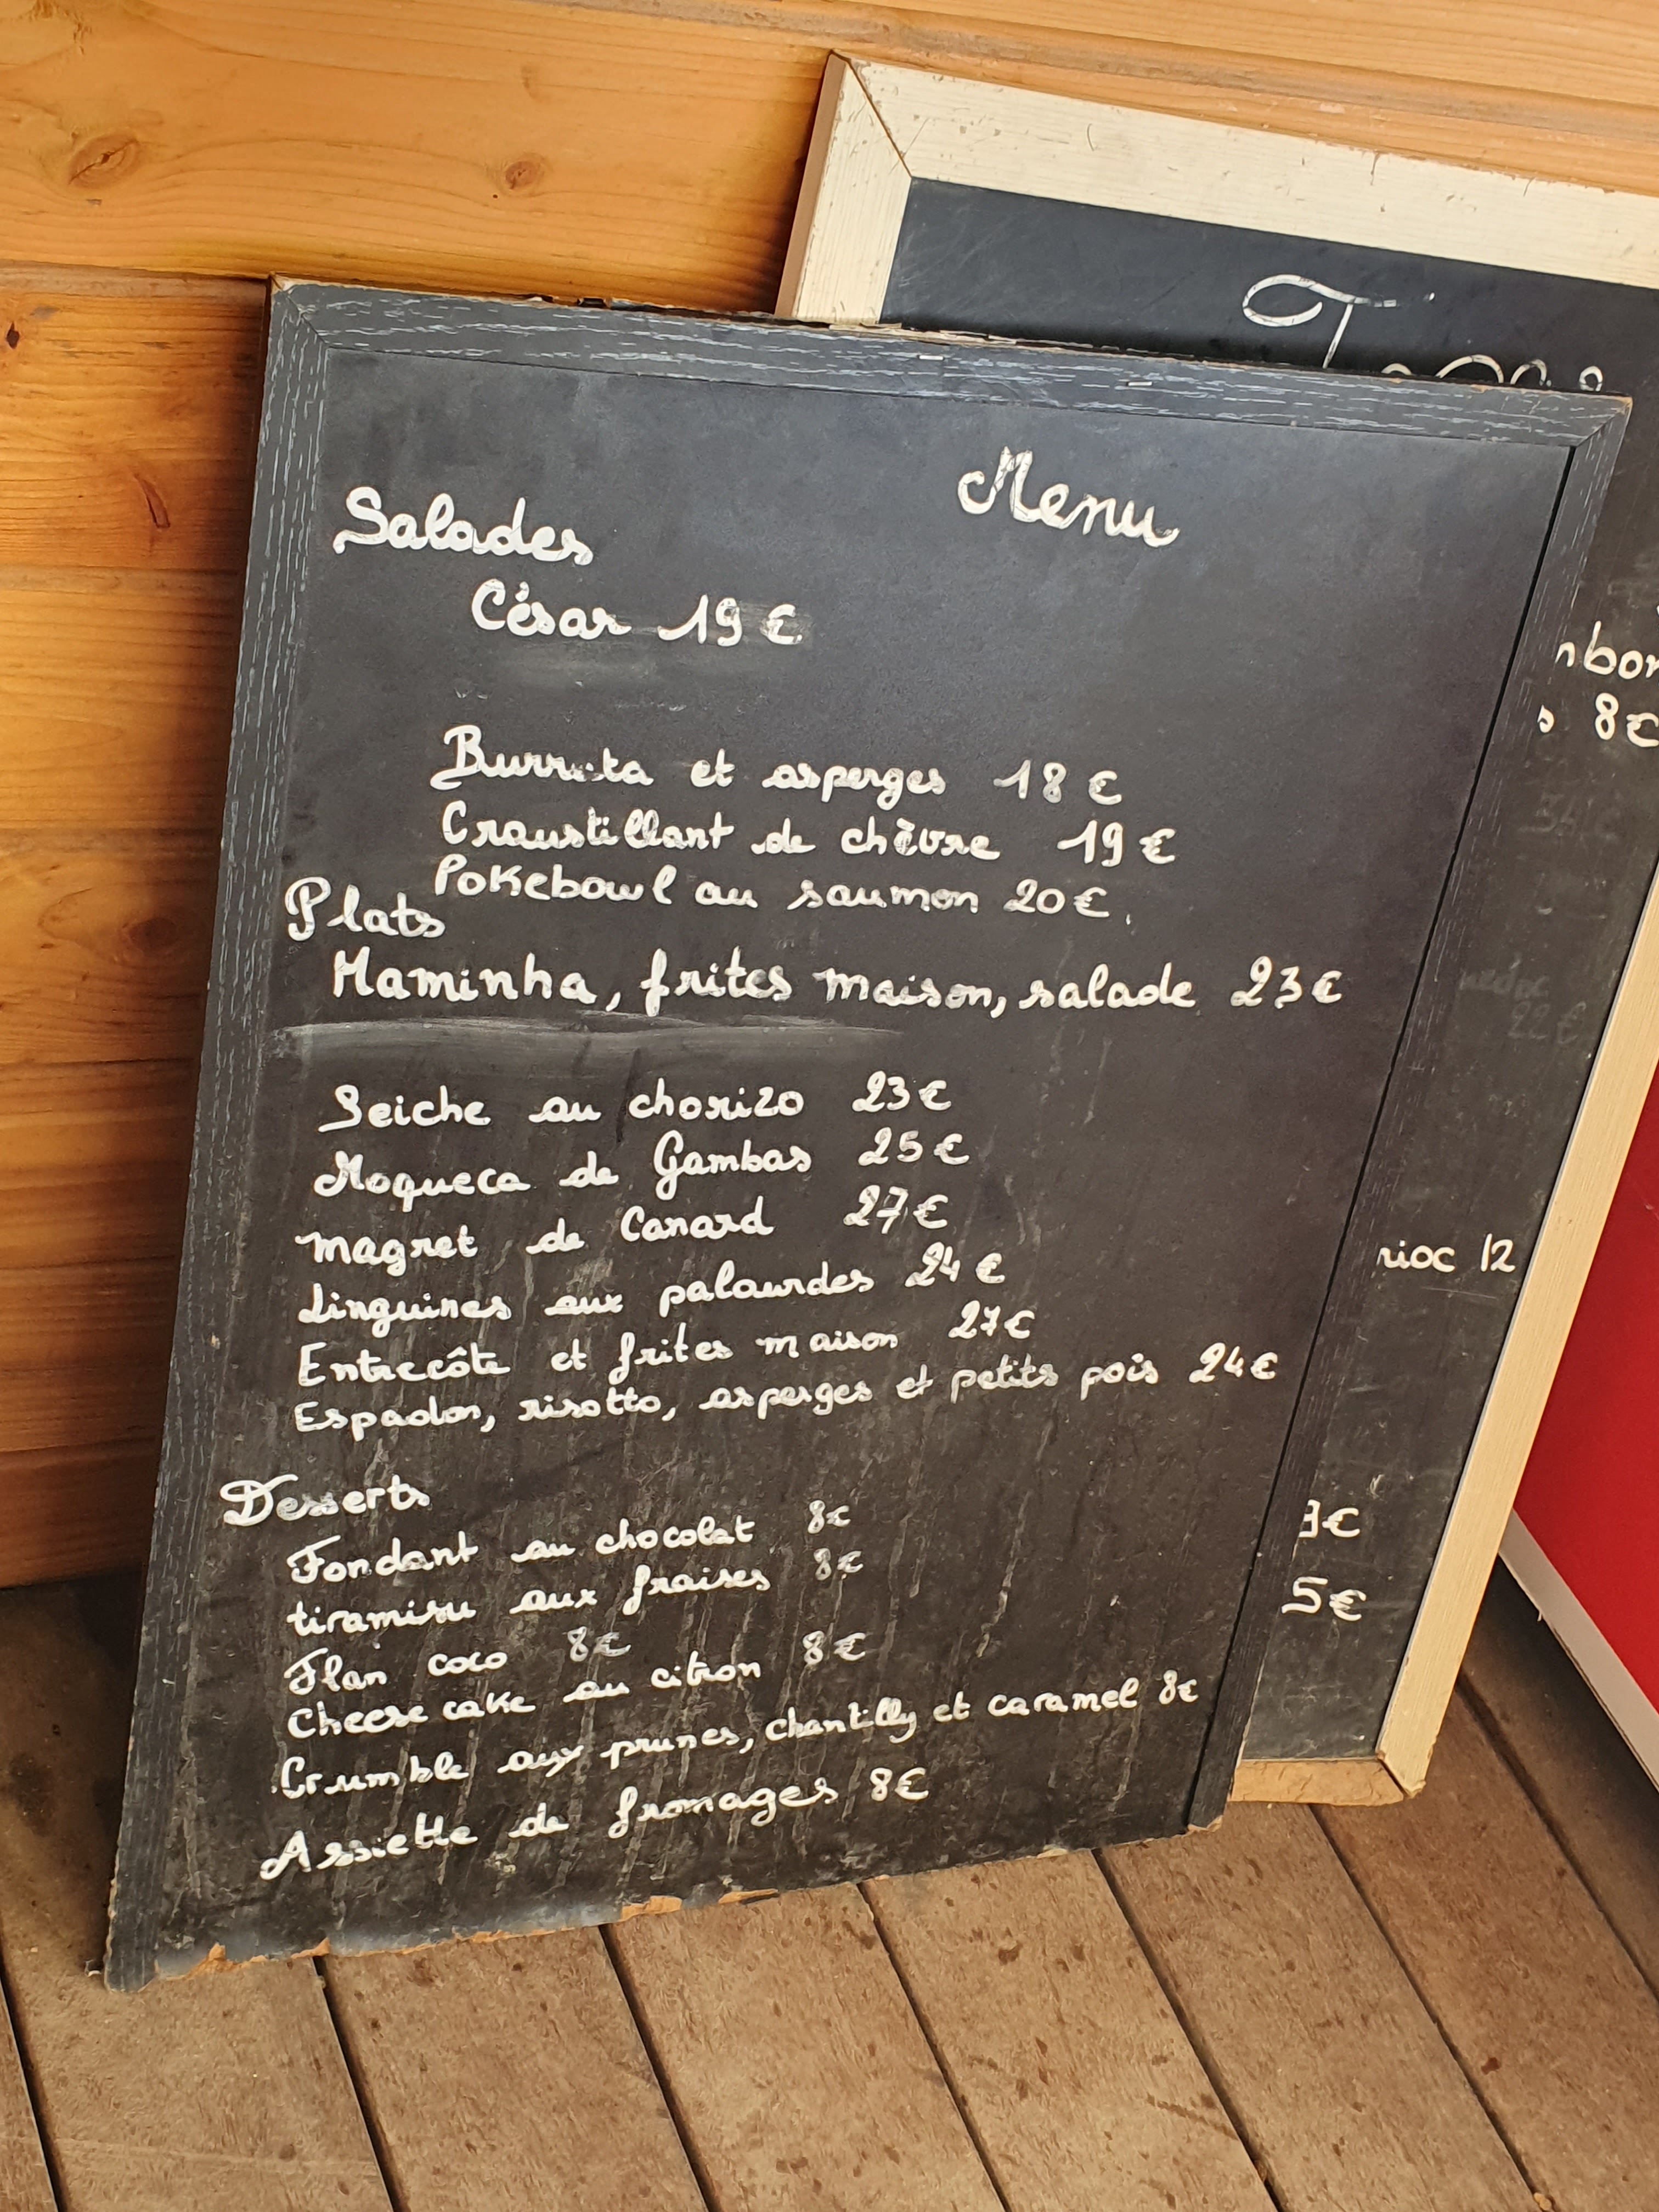 Menu
Salades
César 19 €
Burrata et asperges 18 €
Croustillant de chèvre 19 €
Pokebowl au saumon 20 €.
Plats
Maminha, frites maison, salade 23 €
Seiche au chorizo 23 €
Moqueca de Gambas 25 €
magret de Canard 27 €
Linguines aux palourdes 24 €
Entrecôte et frites maison 27 €
Espadon, risotto, asperges et petits pois 24 €
Desserts
Fondant au chocolat 8€
tiramisu aux fraises 8€
Flan coco 8€
Cheese cake au citron 8€
Crumble aux prunes, chantilly et caramel 8€
Assiette de fromages 8€
nbon
s 8€
22 €
rioc 12
5€